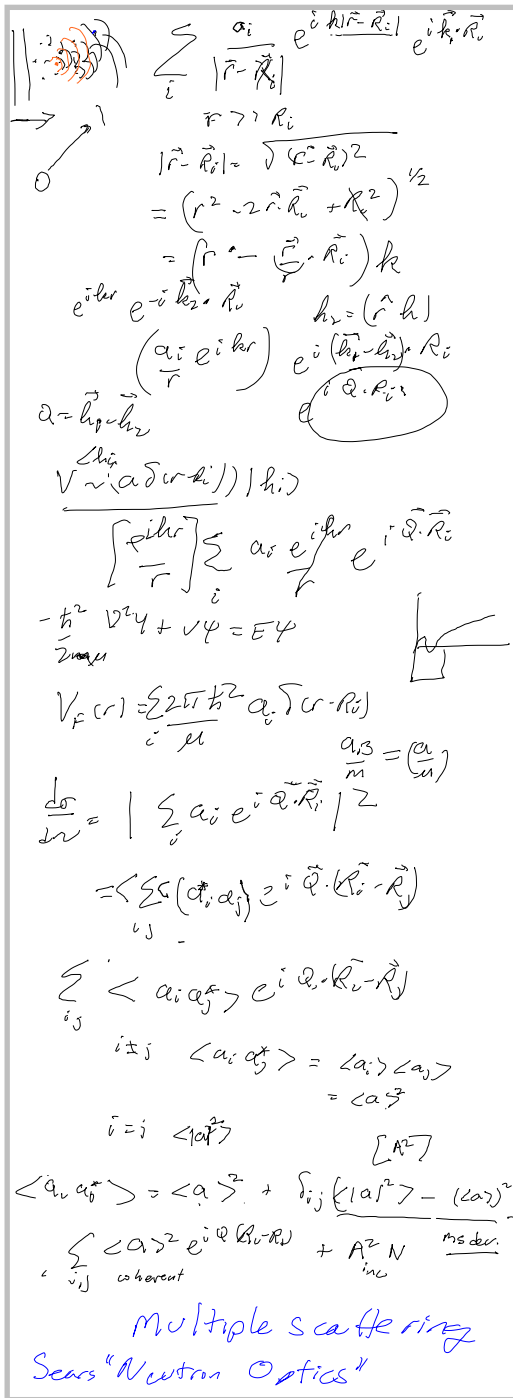 \sum_i \frac{a_i}{|\vec{r}-\vec{R}_i|} e^{ik|\vec{r}-\vec{R}_i|} e^{i\vec{k}_1\cdot\vec{R}_i}
r >> R_i
|\vec{r}-\vec{R}_i| = \sqrt{(\vec{r}-\vec{R}_i)^2}
= (r^2 - 2\vec{r}\cdot\vec{R}_i + R_i^2)^{1/2}
= (r - \frac{\vec{r}}{r}\cdot\vec{R}_i) k
e^{ikr} e^{-i\vec{k}_2\cdot\vec{R}_i} k_2 = (\hat{r} k)
(\frac{a_i}{r} e^{ikr}) e^{i(\vec{k}_1-\vec{k}_2)\cdot R_i}
e^{iQ\cdot R_i}
Q = \vec{k}_1-\vec{k}_2
V ~ (a δ(r-R_i)) |k_i>
[\frac{e^{ikr}}{r}] \sum_i a_i \frac{e^{ikr}}{r} e^{i\vec{Q}\cdot\vec{R}_i}
-\frac{\hbar^2}{2\mu} ∇^2ψ + Vψ = Eψ
V_F(r) = \sum_i \frac{2π\hbar^2}{\mu} a_i δ(r-R_i)
\frac{a_B}{m} = (\frac{a}{\mu})
\frac{dσ}{dΩ} = | \sum_i a_i e^{i\vec{Q}\cdot\vec{R}_i} |^2
= < \sum_{ij} (a_i^* a_j) e^{i\vec{Q}\cdot(\vec{R}_i-\vec{R}_j)}
\sum_{ij} < a_i a_j^* > e^{iQ\cdot(\vec{R}_i-\vec{R}_j)}
i ≠ j <a_i a_j^*> = <a_i><a_j>
= <a>^2
i = j <|a|^2>
[A^2]
<a_i a_j^*> = <a>^2 + δ_{ij} (<|a|^2> - (<a>)^2
ms dev.
\sum_{i,j} <a>^2 e^{iQ(R_i-R_j)} + A^2 N
coherent inc
Multiple scattering
Sears "Neutron Optics"